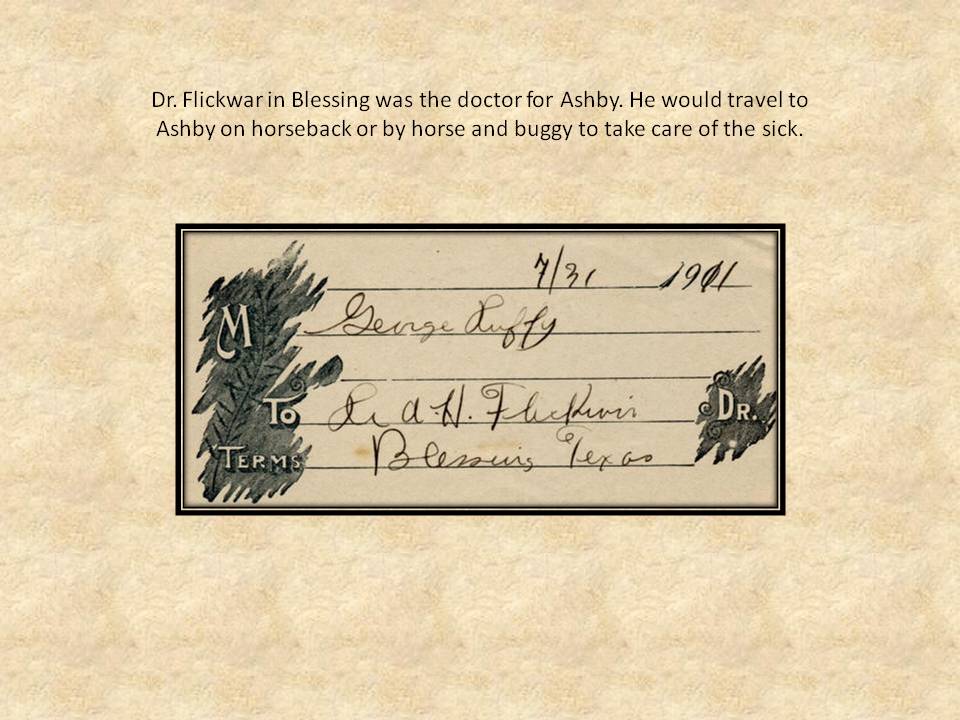 Dr. Flickwar in Blessing was the doctor for Ashby. He would travel to
Ashby on horseback or by horse and buggy to take care of the sick.
7/31 1911
M George Ruffy
To A. H. Flickwir DR.
TERMS Blessing Texas